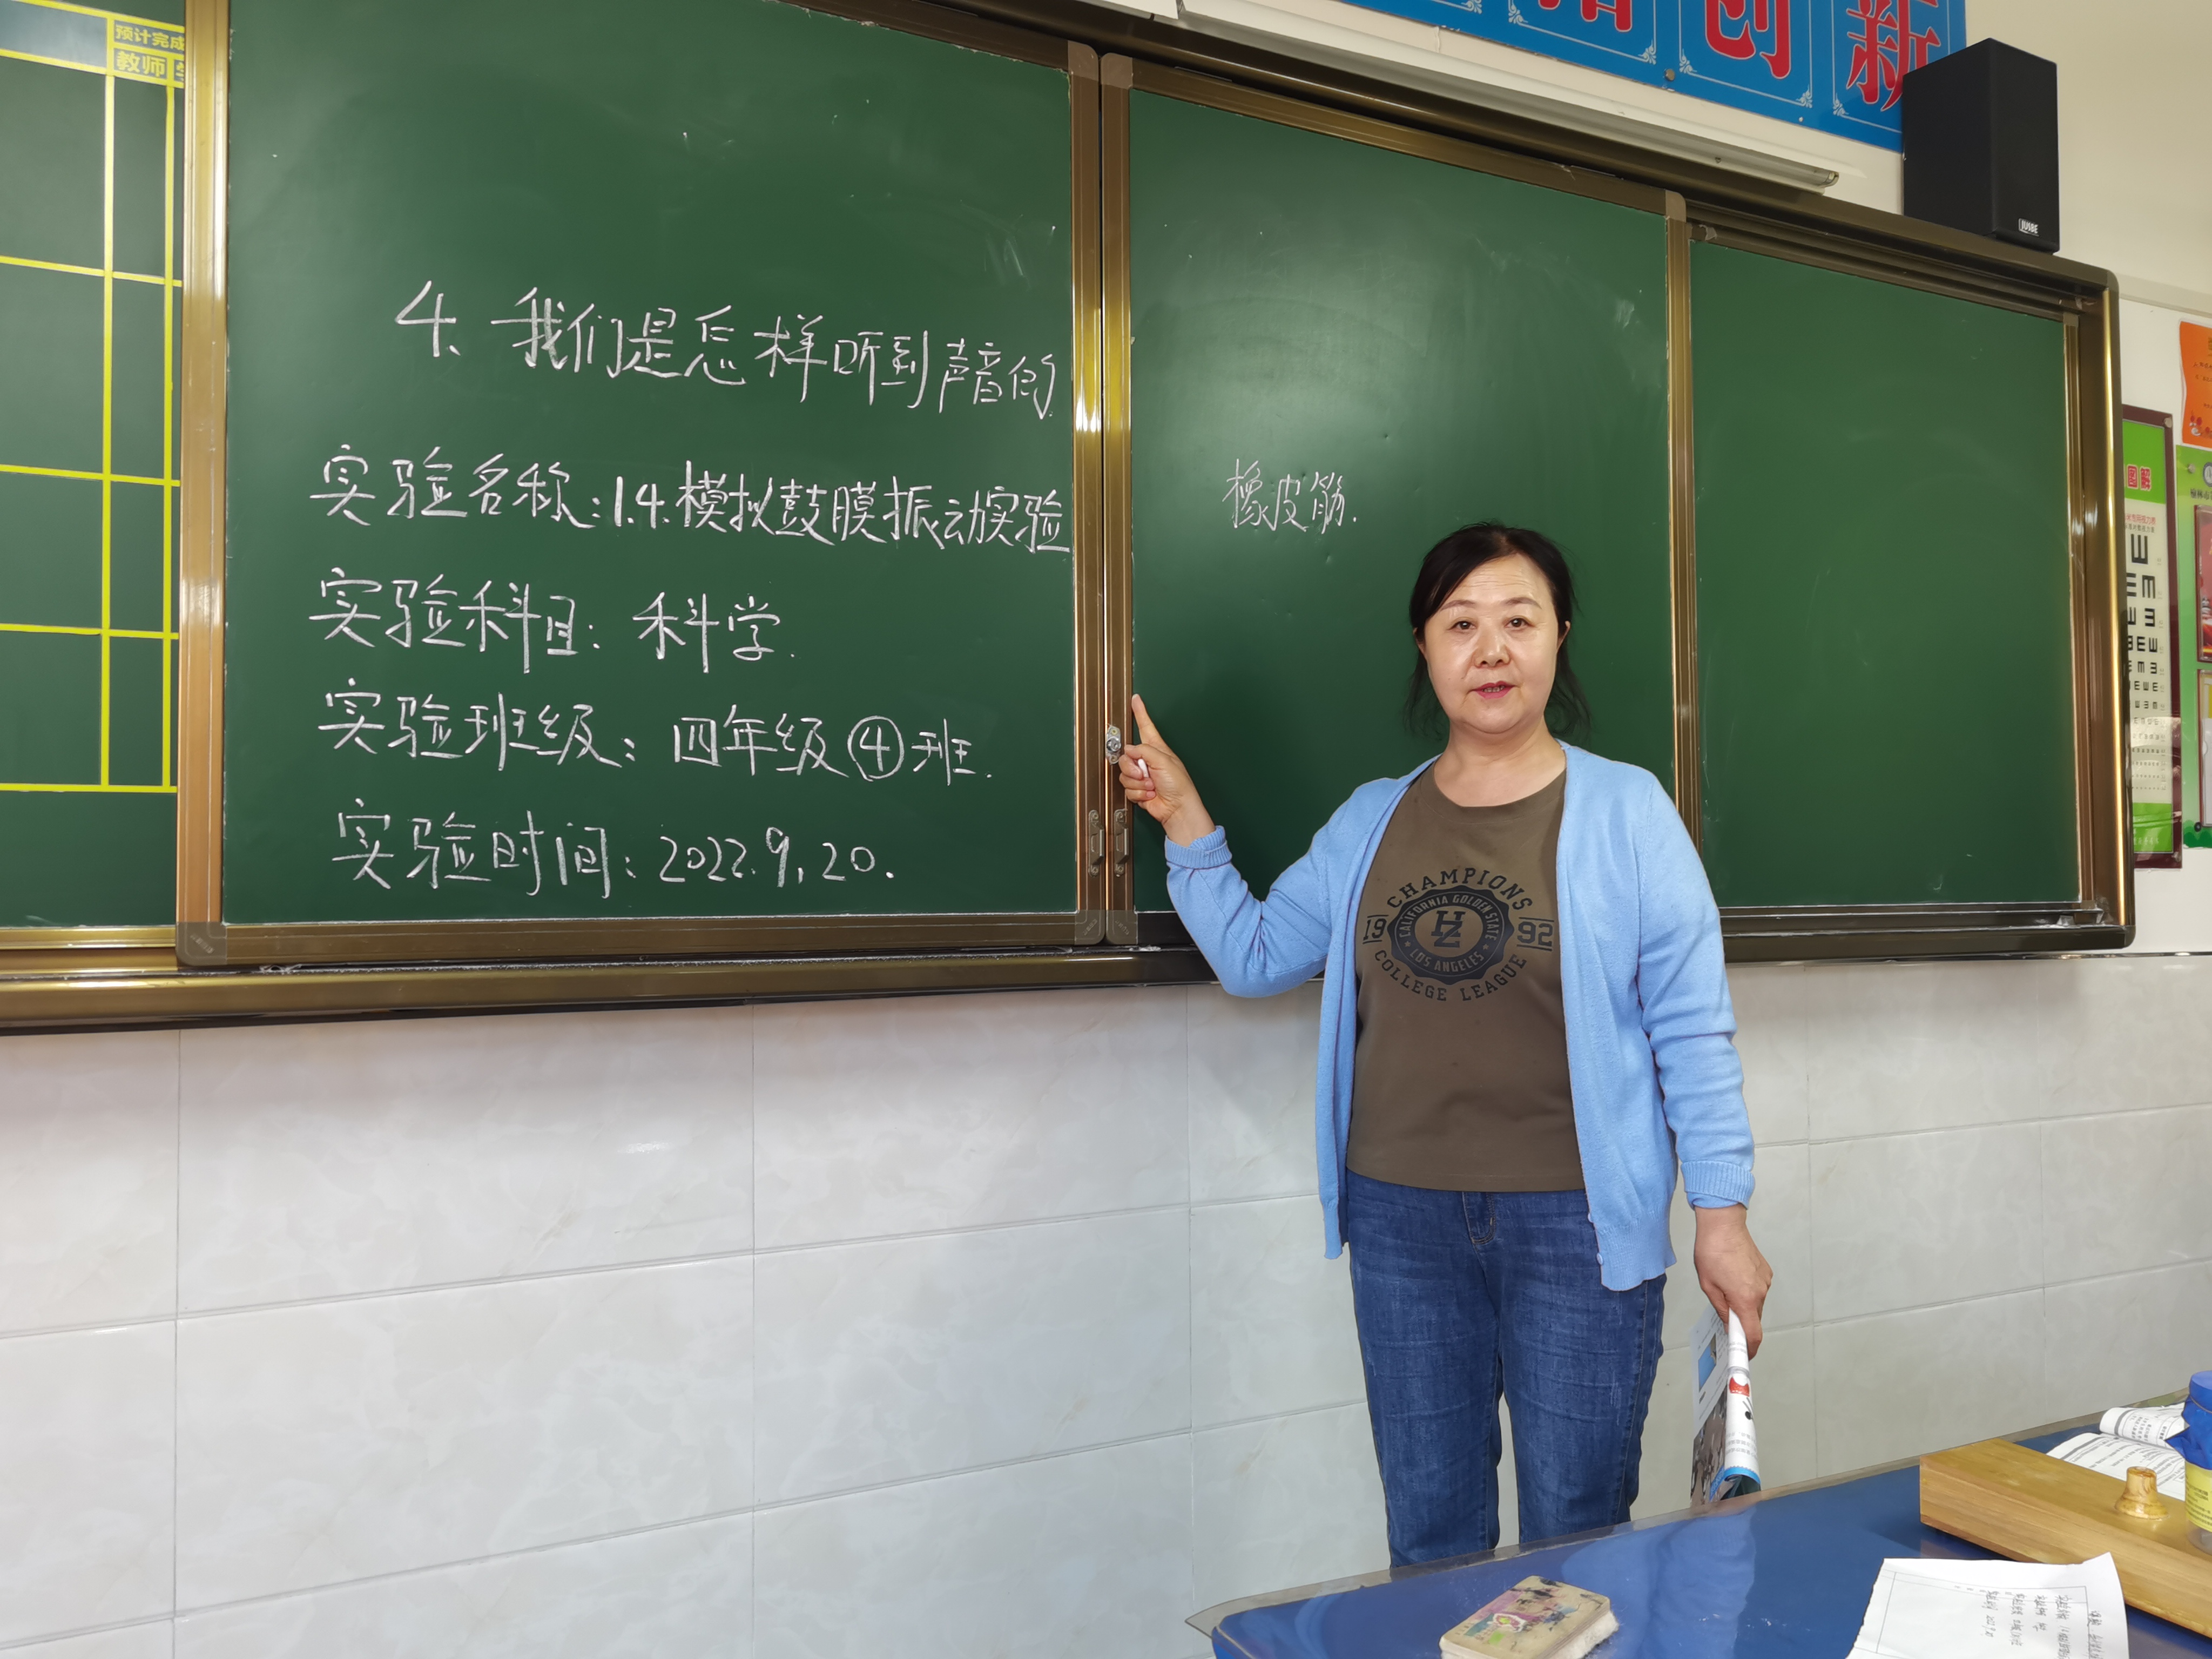 预计完成
教师
创新
JUSBE
4. 我们是怎样听到声音的
实验名称:1.4.模拟鼓膜振动实验
实验科目: 科学.
实验班级: 四年级④班.
实验时间: 2022.9.20.
橡皮筋.
图解
CHAMPIONS
CALIFORNIA GOLDEN STATE
19 HZ 92
LOS ANGELES
COLLEGE LEAGUE